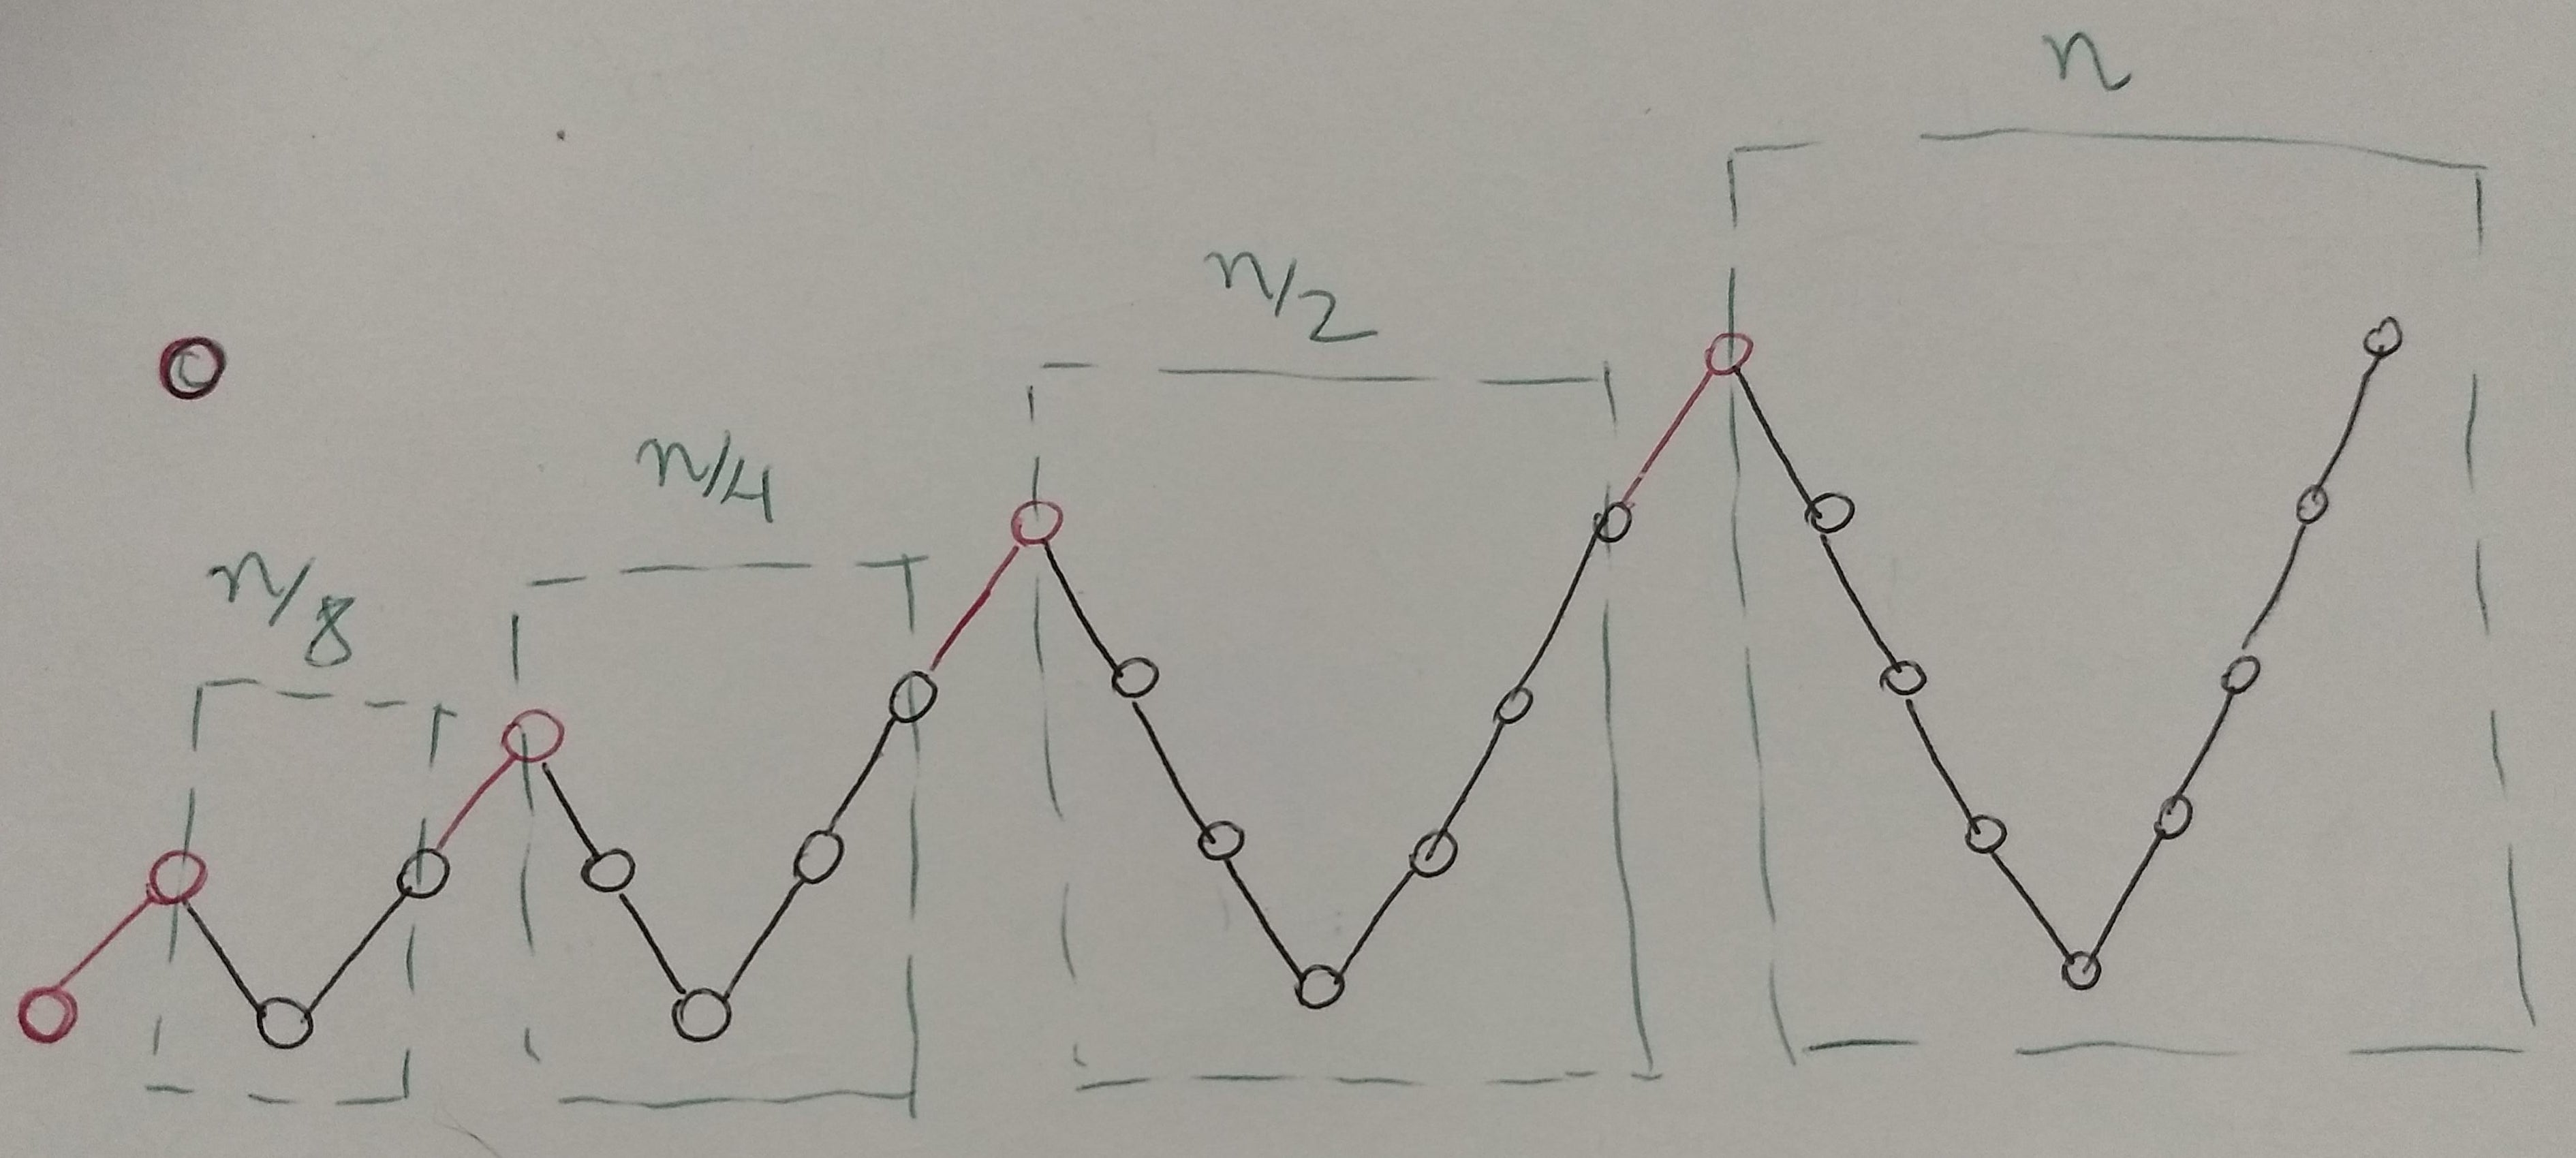 n/8
n/4
n/2
n